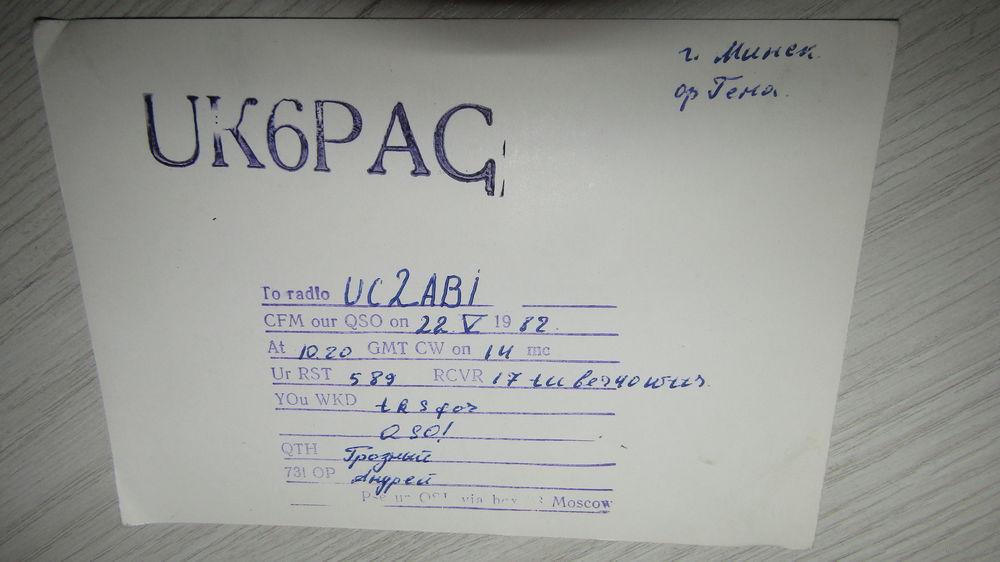 г. Минск
ор Гена.
UK6PAG
To radio UC2ABI
CFM our QSO on 22 V 1982.
At 10.20 GMT CW on 14 mc
Ur RST 589 RCVR 17
YOu WKD tks for
QSO!
QTH Грозный
73! OP Андрей
Pse ur QSL via box Moscow